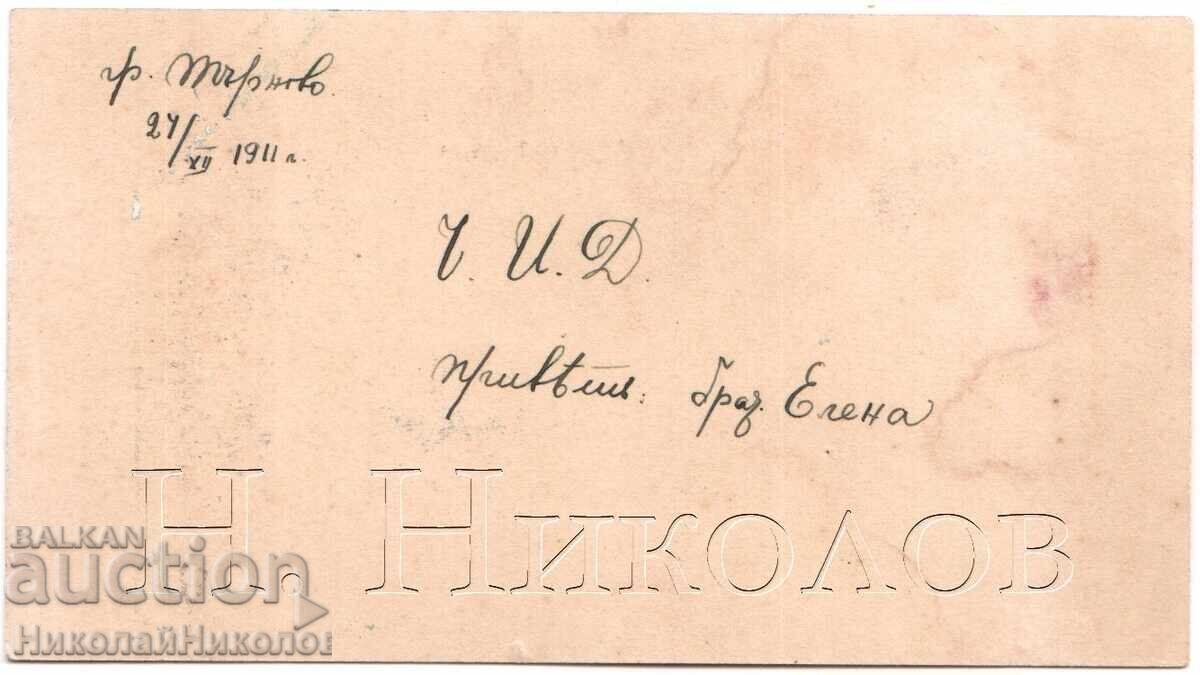 гр. Търново
24/XII 1911 г.
Ч. И. Д.
привѣтъ: брат. Елена
Н. Николов
BALKAN
auction
НиколайНиколов